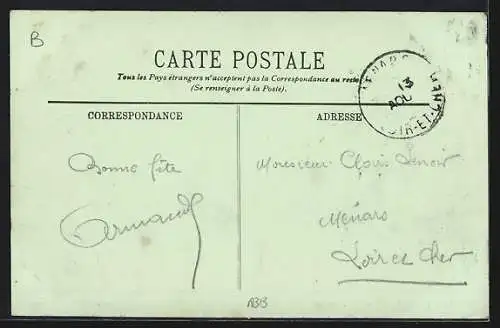 B
CARTE POSTALE
Tous les Pays étrangers n'acceptent pas la Correspondance au recto
(Se renseigner à la Poste).
MENARS
13
AOU
LOIR-ET-CHER
CORRESPONDANCE
ADRESSE
Bonne fête
Armand
Monsieur Clovis Lenoir
Menars
Loir et Cher